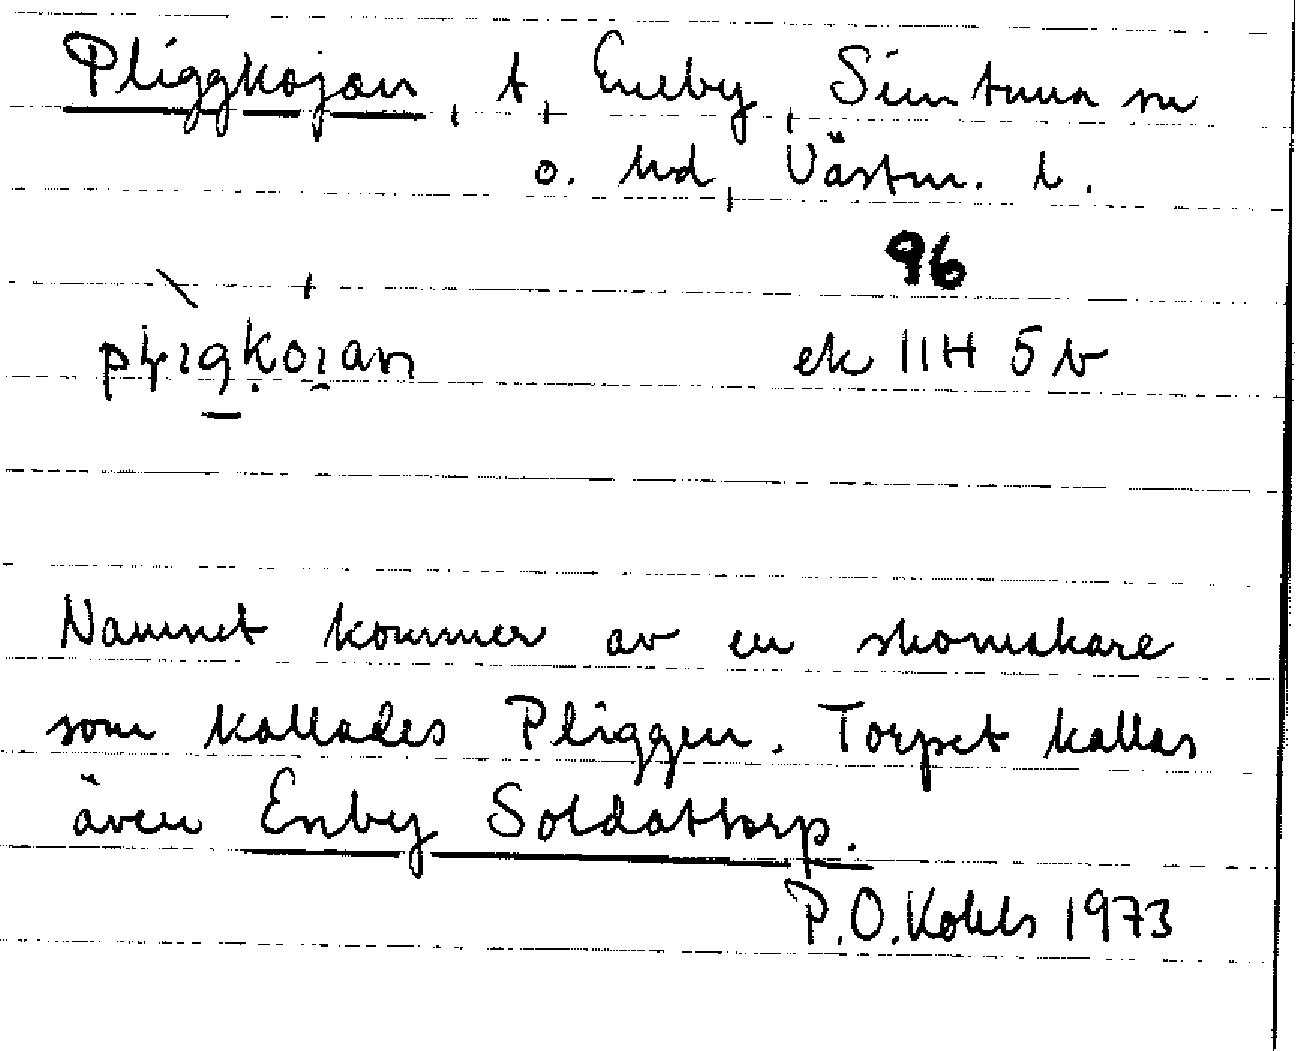 Pliggkojan, t, Eneby, Simtuna sn
o. hd, Västm. l.
96
ek 11H 5 b
Namnet kommer av en skomakare
som kallades Pliggen. Torpet kallas
även Enby Soldattorp.
P.O. Kohls 1973